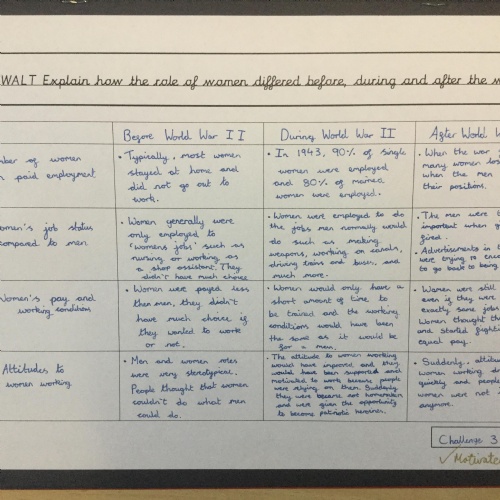 WALT Explain how the role of women differed before, during and after the w
Before World War II
During World War II
After World W
mber of women
n paid employment
• Typically, most women
stayed at home and
did not go out to
work.
• In 1943, 90% of single
women were employed
and 80% of married
women were employed.
• When the war
many women los
when the men
their positions.
omen's job status
compared to men.
• Women generally were
only employed to
'womens jobs' such as
nursing or working as
a shop assistant. They
didn't have much choice
Women were employed to do
the jobs men normally would
do such as making
weapons, working on canals,
driving trains and buses, and
much more.
• The men were
important when
fired.
• Advertisements in
were trying to
to go back to being
Women's pay and
working conditions
• Women were payed less
then men, they didn't
have much choice if
they wanted to work
or not.
• Women would only have a
short amount of time to
be trained and the working
conditions would have been
the same as it would be
for a man.
• Women were still
even if they were
exactly same jobs
Women thought th
and started fighti
equal pay.
Attitudes to
women working
• Men and women roles
were very stereotypical.
People thought that women
couldn't do what men
could do.
• The attitude to women working
would have improved and they
would have been supported and
motivated to work because people
were relying on them. Suddenly
they became not
and were given the opportunity
to become patriotic heroines.
• Suddenly, attitud
women working
quickly and people
women were not
anymore.
Challenge 3
✓ Motivate